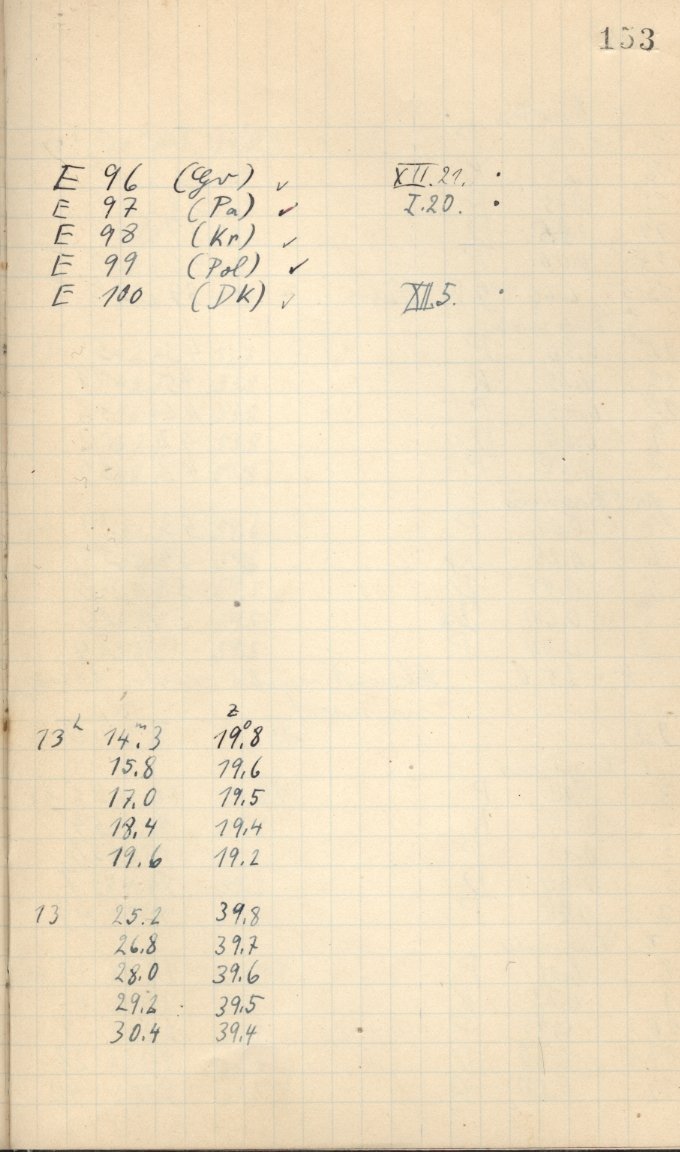 153
E 96 (Gv) ✓ XII.21. •
E 97 (Pa) ✓ I.20. •
E 98 (Kr) ✓
E 99 (Pol) ✓
E 100 (DK) ✓ XII.5. •
z
13h 14m.3 19°.8
15.8 19.6
17.0 19.5
18.4 19.4
19.6 19.2
13 25.2 39.8
26.8 39.7
28.0 39.6
29.2 39.5
30.4 39.4